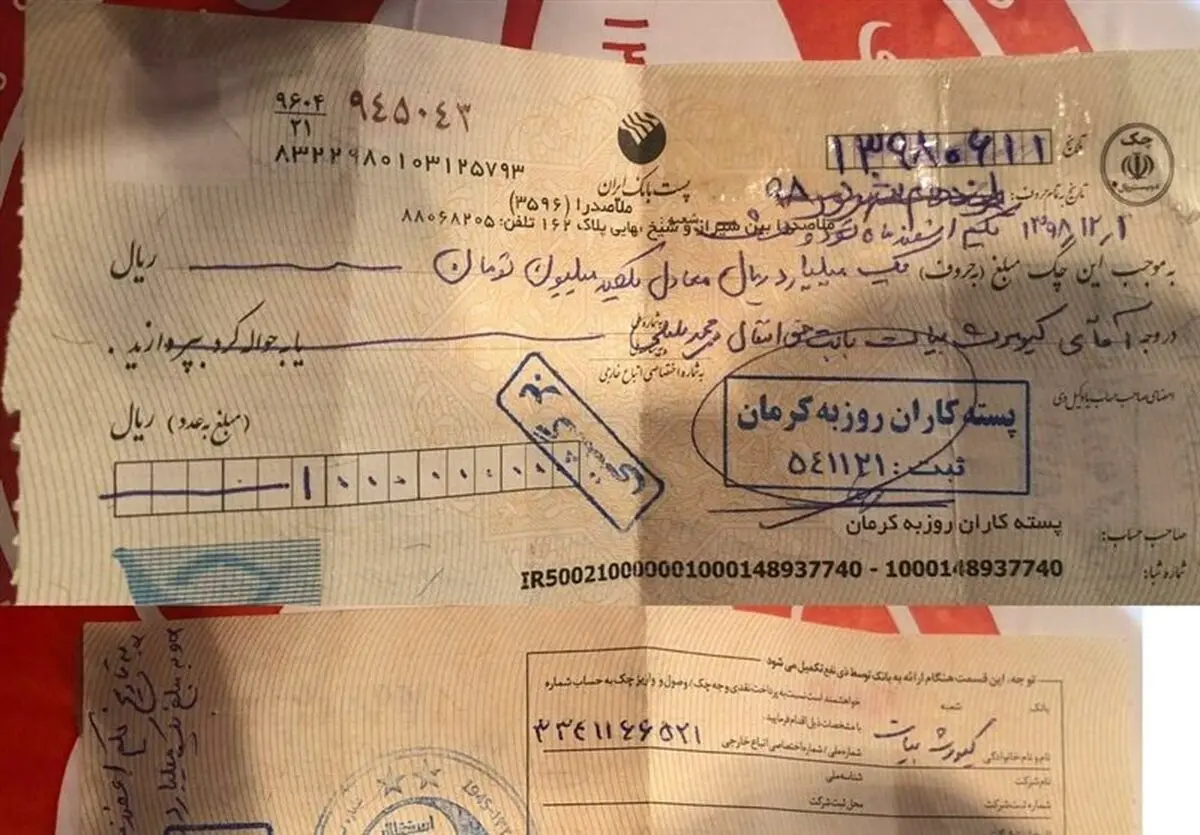 ۹۶۰۴ ۹۴۵۰۴۳
۲۱
۸۳۲۲۹۸۰۱۰۳۱۲۵۷۹۳
پست بانک ایران
ملاصدرا (۳۵۹۶)
ملاصدرا بین شیراز و شیخ بهایی پلاک ۱۶۲ تلفن: ۸۸۰۶۸۲۰۵
چک
تاریخ ۱۳۹۸۰۶۱۱
تاریخ به تمام حروف: ۹۸
۱۳۹۸,۱۲,۱ یکم اسفند ماه نود و هشت
به موجب این چک مبلغ (به حروف) یک میلیارد ریال معادل یکصد میلیون تومان ریال
در وجه آقای کیومرث بیات بابت حق انتقال یا به حواله کرد بپردازید.
به شماره اختصاصی اتباع خارجی
امضای صاحب حساب یا وکیل وی
پسته کاران روزبه کرمان
ثبت: ۵۴۱۱۲۱
(مبلغ به عدد) ریال
صاحب حساب: پسته کاران روزبه کرمان
شماره شبا: IR500210000001000148937740 - 1000148937740
توجه، این قسمت هنگام ارائه به بانک توسط ذی نفع تکمیل می شود
خواهشمند است نسبت به پرداخت نقدی وجه چک / وصول و واریز چک به حساب شماره
بانک شعبه با مشخصات ذیل اقدام فرمایید.
نام و نام خانوادگی کیومرث بیات شماره ملی / شماره اختصاصی اتباع خارجی ۳۳۴۱۱۶۶۵۲۱
نام شرکت شناسه ملی
شماره ثبت شرکت محل ثبت شرکت